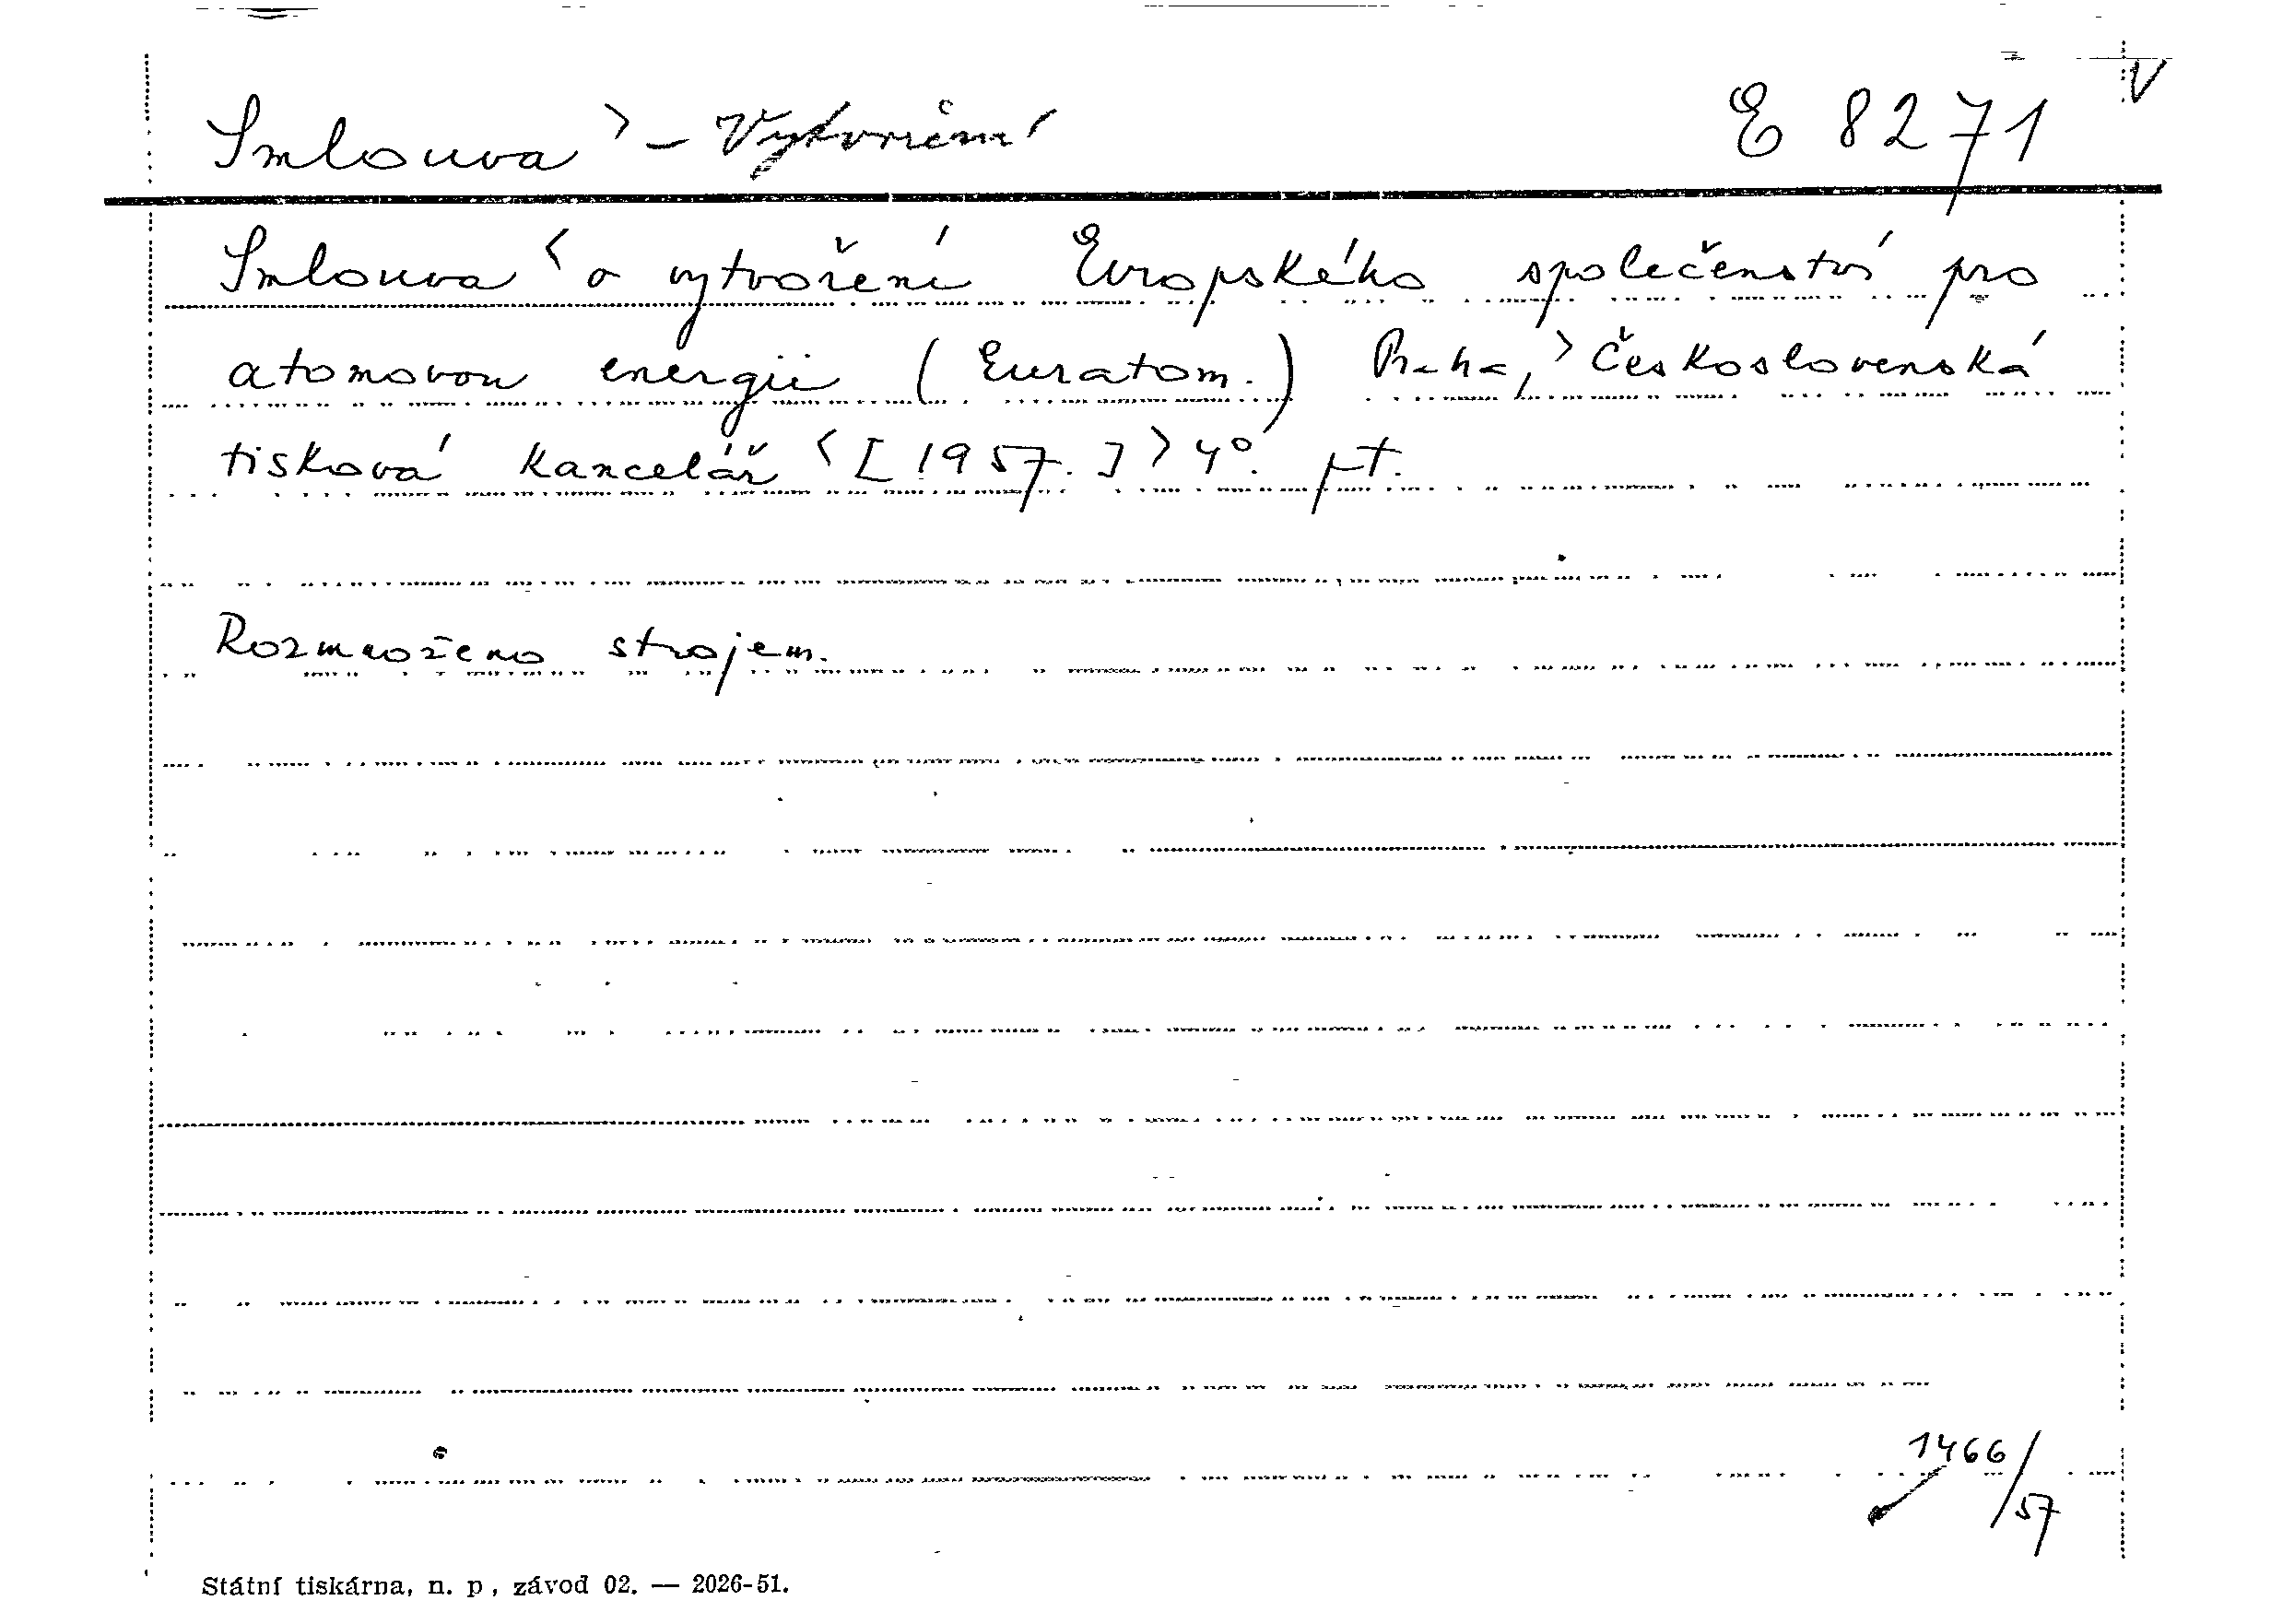 Smlouva > - Vytvoření E 8271 V
Smlouva < o vytvoření Evropského společenství pro
atomovou energii (Euratom.) Praha, > Československá
tisková kancelář < [1957.] > 4°. pt.
Rozmnoženo strojem.
1466/57
Státní tiskárna, n. p, závod 02. — 2026-51.